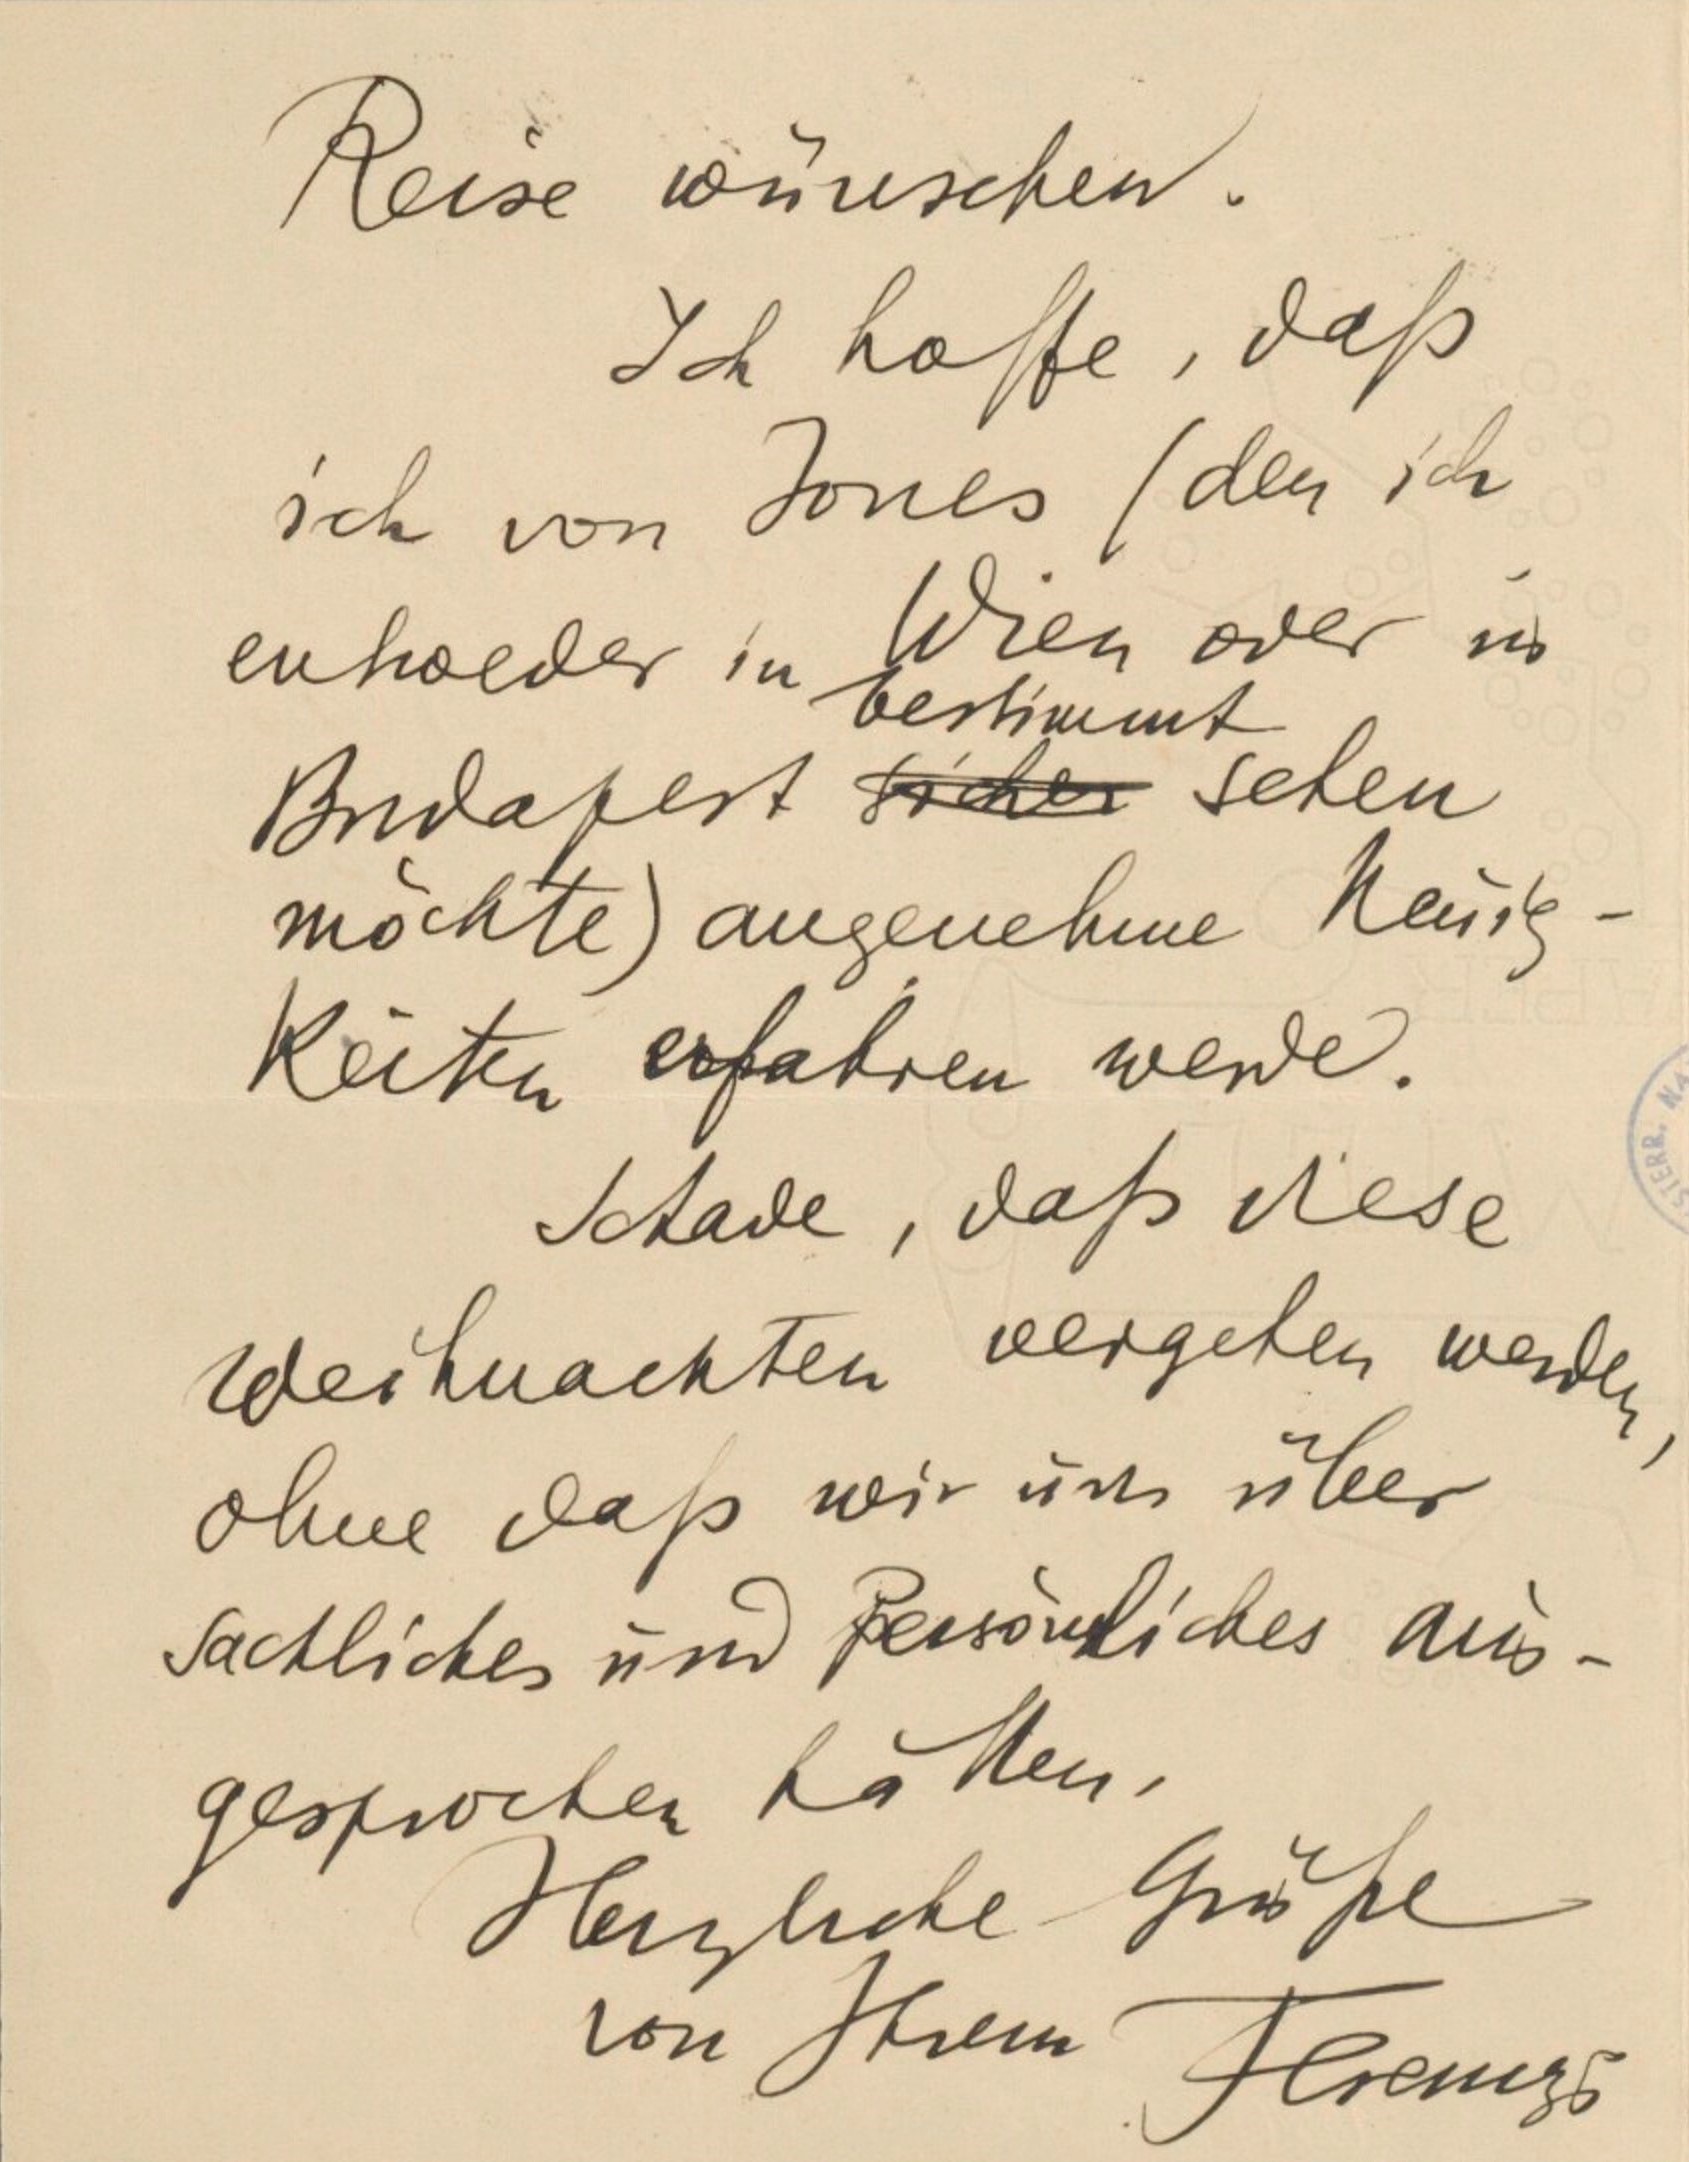 Reise wünschen.
Ich hoffe, daß
ich von Jones (den ich
entweder in Wien oder in
bestimmt
Budapest sicher sehen
möchte) angenehme Neuig-
keiten erfahren werde.
Schade, daß diese
Weihnachten vergehen werden,
ohne daß wir uns über
sachliches und Persönliches aus-
gesprochen hätten.
Herzliche Grüße
von Ihrem Ferenczi
STERR. NA